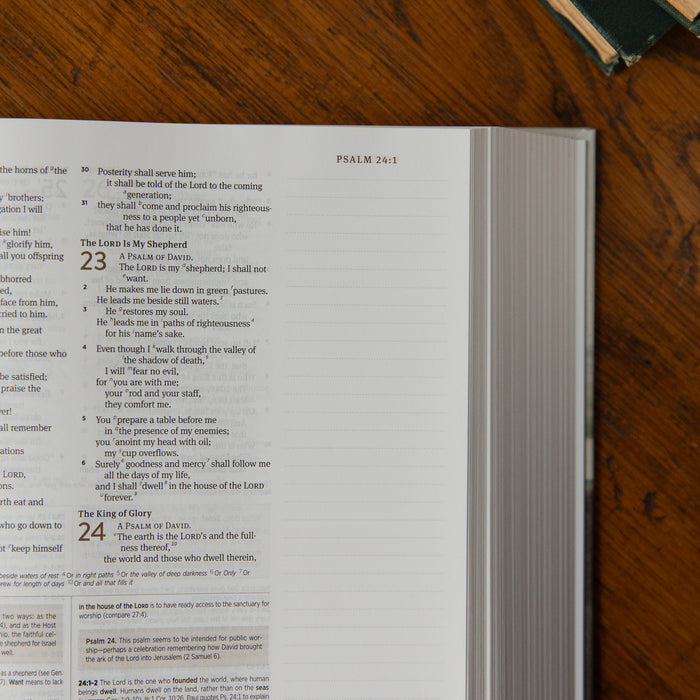 PSALM 24:1
the horns of the
brothers;
I will
him!
glorify him,
all you offspring
face from him,
cried to him.
the great
before those who
be satisfied;
praise the
shall remember
LORD,
eat and
who go down to
keep himself
30 Posterity shall serve him;
it shall be told of the Lord to the coming
generation;
31 they shall come and proclaim his righteous-
ness to a people yet unborn,
that he has done it.
The LORD Is My Shepherd
23 A PSALM OF DAVID.
The LORD is my shepherd; I shall not
want.
2 He makes me lie down in green pastures.
He leads me beside still waters.
3 He restores my soul.
He leads me in paths of righteousness
for his name's sake.
4 Even though I walk through the valley of
the shadow of death,
I will fear no evil,
for you are with me;
your rod and your staff,
they comfort me.
5 You prepare a table before me
in the presence of my enemies;
you anoint my head with oil;
my cup overflows.
6 Surely goodness and mercy shall follow me
all the days of my life,
and I shall dwell in the house of the LORD
forever.
The King of Glory
24 A PSALM OF DAVID.
The earth is the LORD's and the full-
ness thereof,
the world and those who dwell therein,
beside waters of rest 4 Or in right paths 5 Or the valley of deep darkness 6 Or Only 7 Or
for length of days 10 Or and all that fills it
two ways: as the
and as the Host
the faithful
shepherd for Israel
well.
as a shepherd (see Gen.
Want means to lack
in the house of the LORD is to have ready access to the sanctuary for
worship (compare 27:4).
Psalm 24. This psalm seems to be intended for public wor-
ship—perhaps a celebration remembering how David brought
the ark of the Lord into Jerusalem (2 Samuel 6).
24:1–2 The Lord is the one who founded the world, where human
beings dwell. Humans dwell on the land, rather than on the seas
In 1 Cor. 10:26, Paul quotes Ps. 24:1 to explain